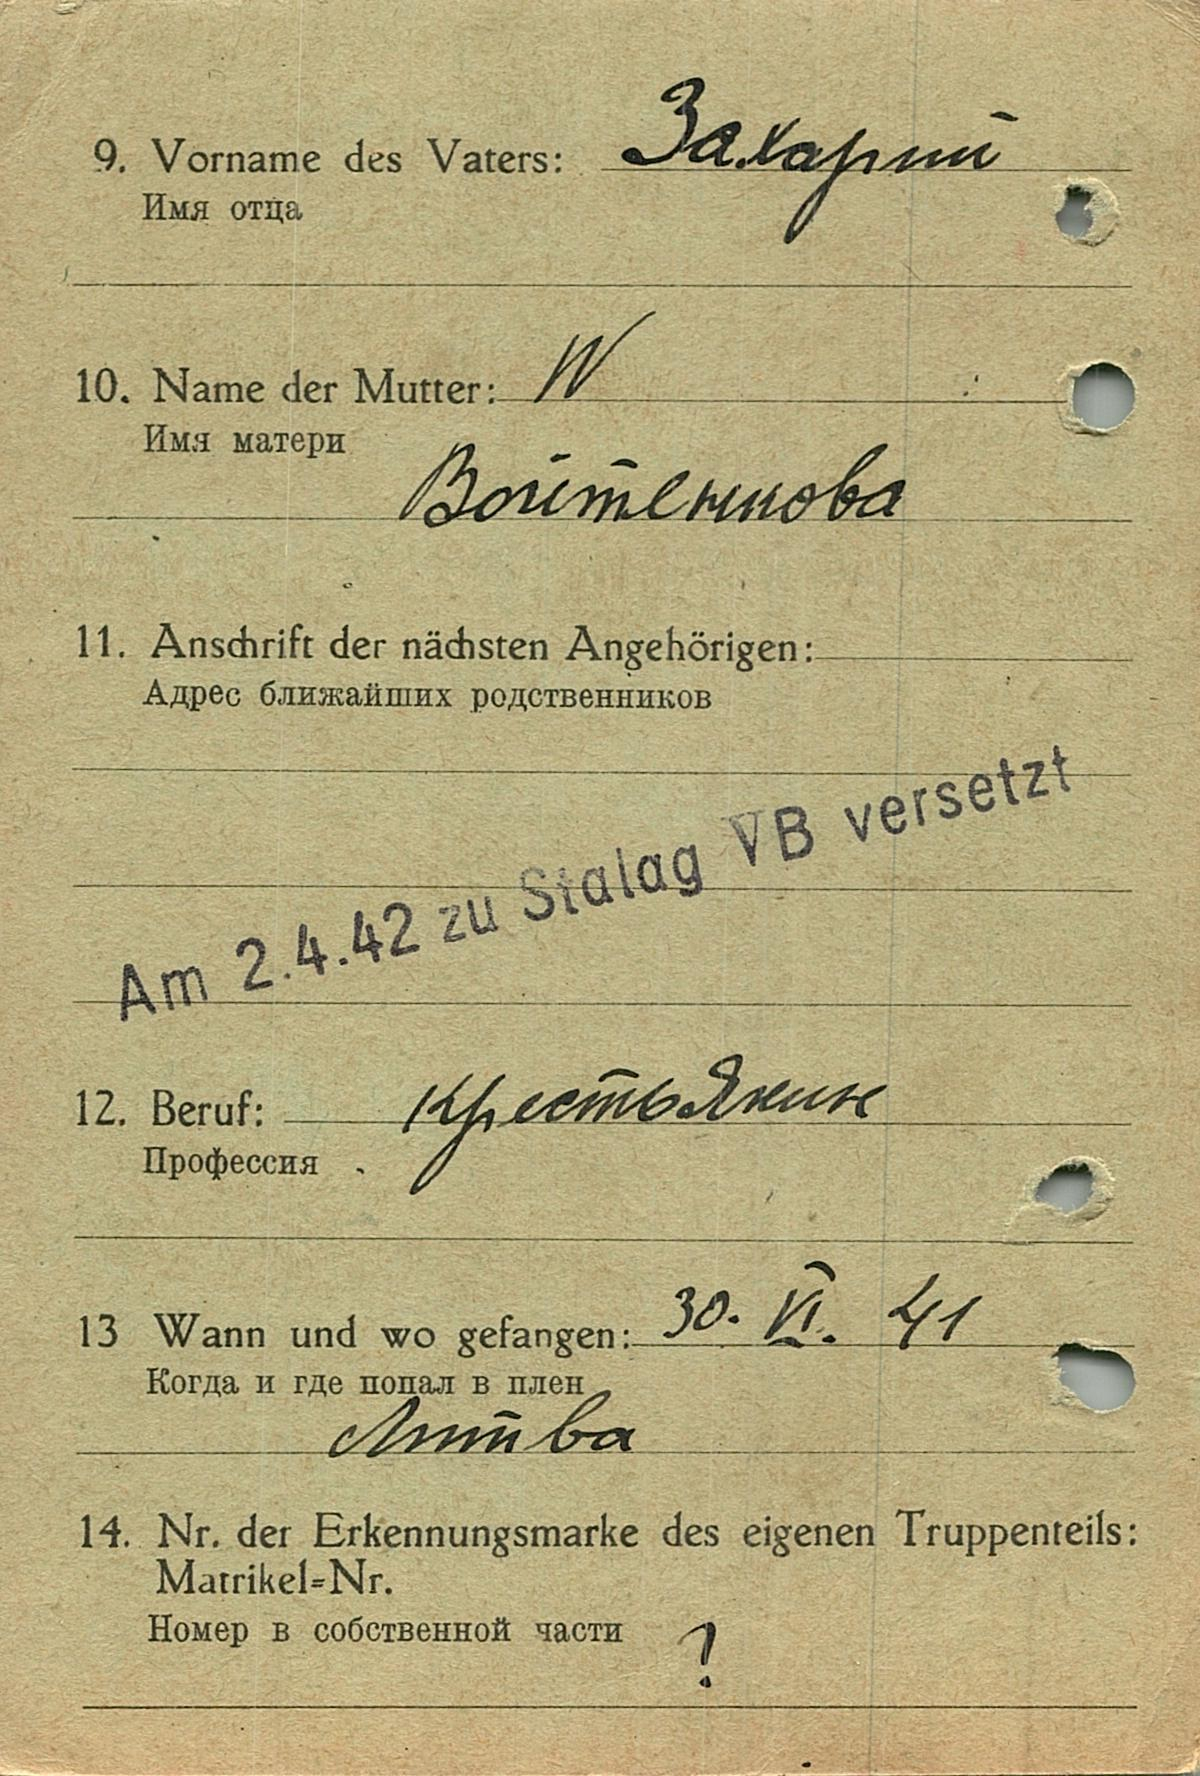 9. Vorname des Vaters: Захарий
Имя отца
10. Name der Mutter: W
Имя матери
Войтенкова
11. Anschrift der nächsten Angehörigen:
Адрес ближайших родственников
Am 2.4.42 zu Stalag VB versetzt
12. Beruf: крестьянин
Профессия
13 Wann und wo gefangen: 30. VI. 41
Когда и где попал в плен
Литва
14. Nr. der Erkennungsmarke des eigenen Truppenteils:
Matrikel=Nr.
Номер в собственной части ?